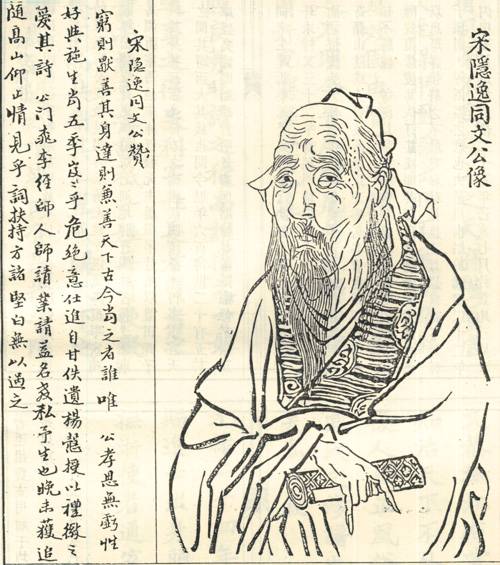 宋隱逸同文公像
宋隱逸同文公贊
窮則獨善其身達則兼善天下古今尚之者誰唯 公孝思無虧性
好與施生當五季岌〻乎危絕意仕進自甘佚遺楊慤授以禮徵之
愛其詩 公門桃李經師人師請業請益名 私予生也晚未獲追
隨高山仰止情見乎詞扶持方諸堅白無以過之